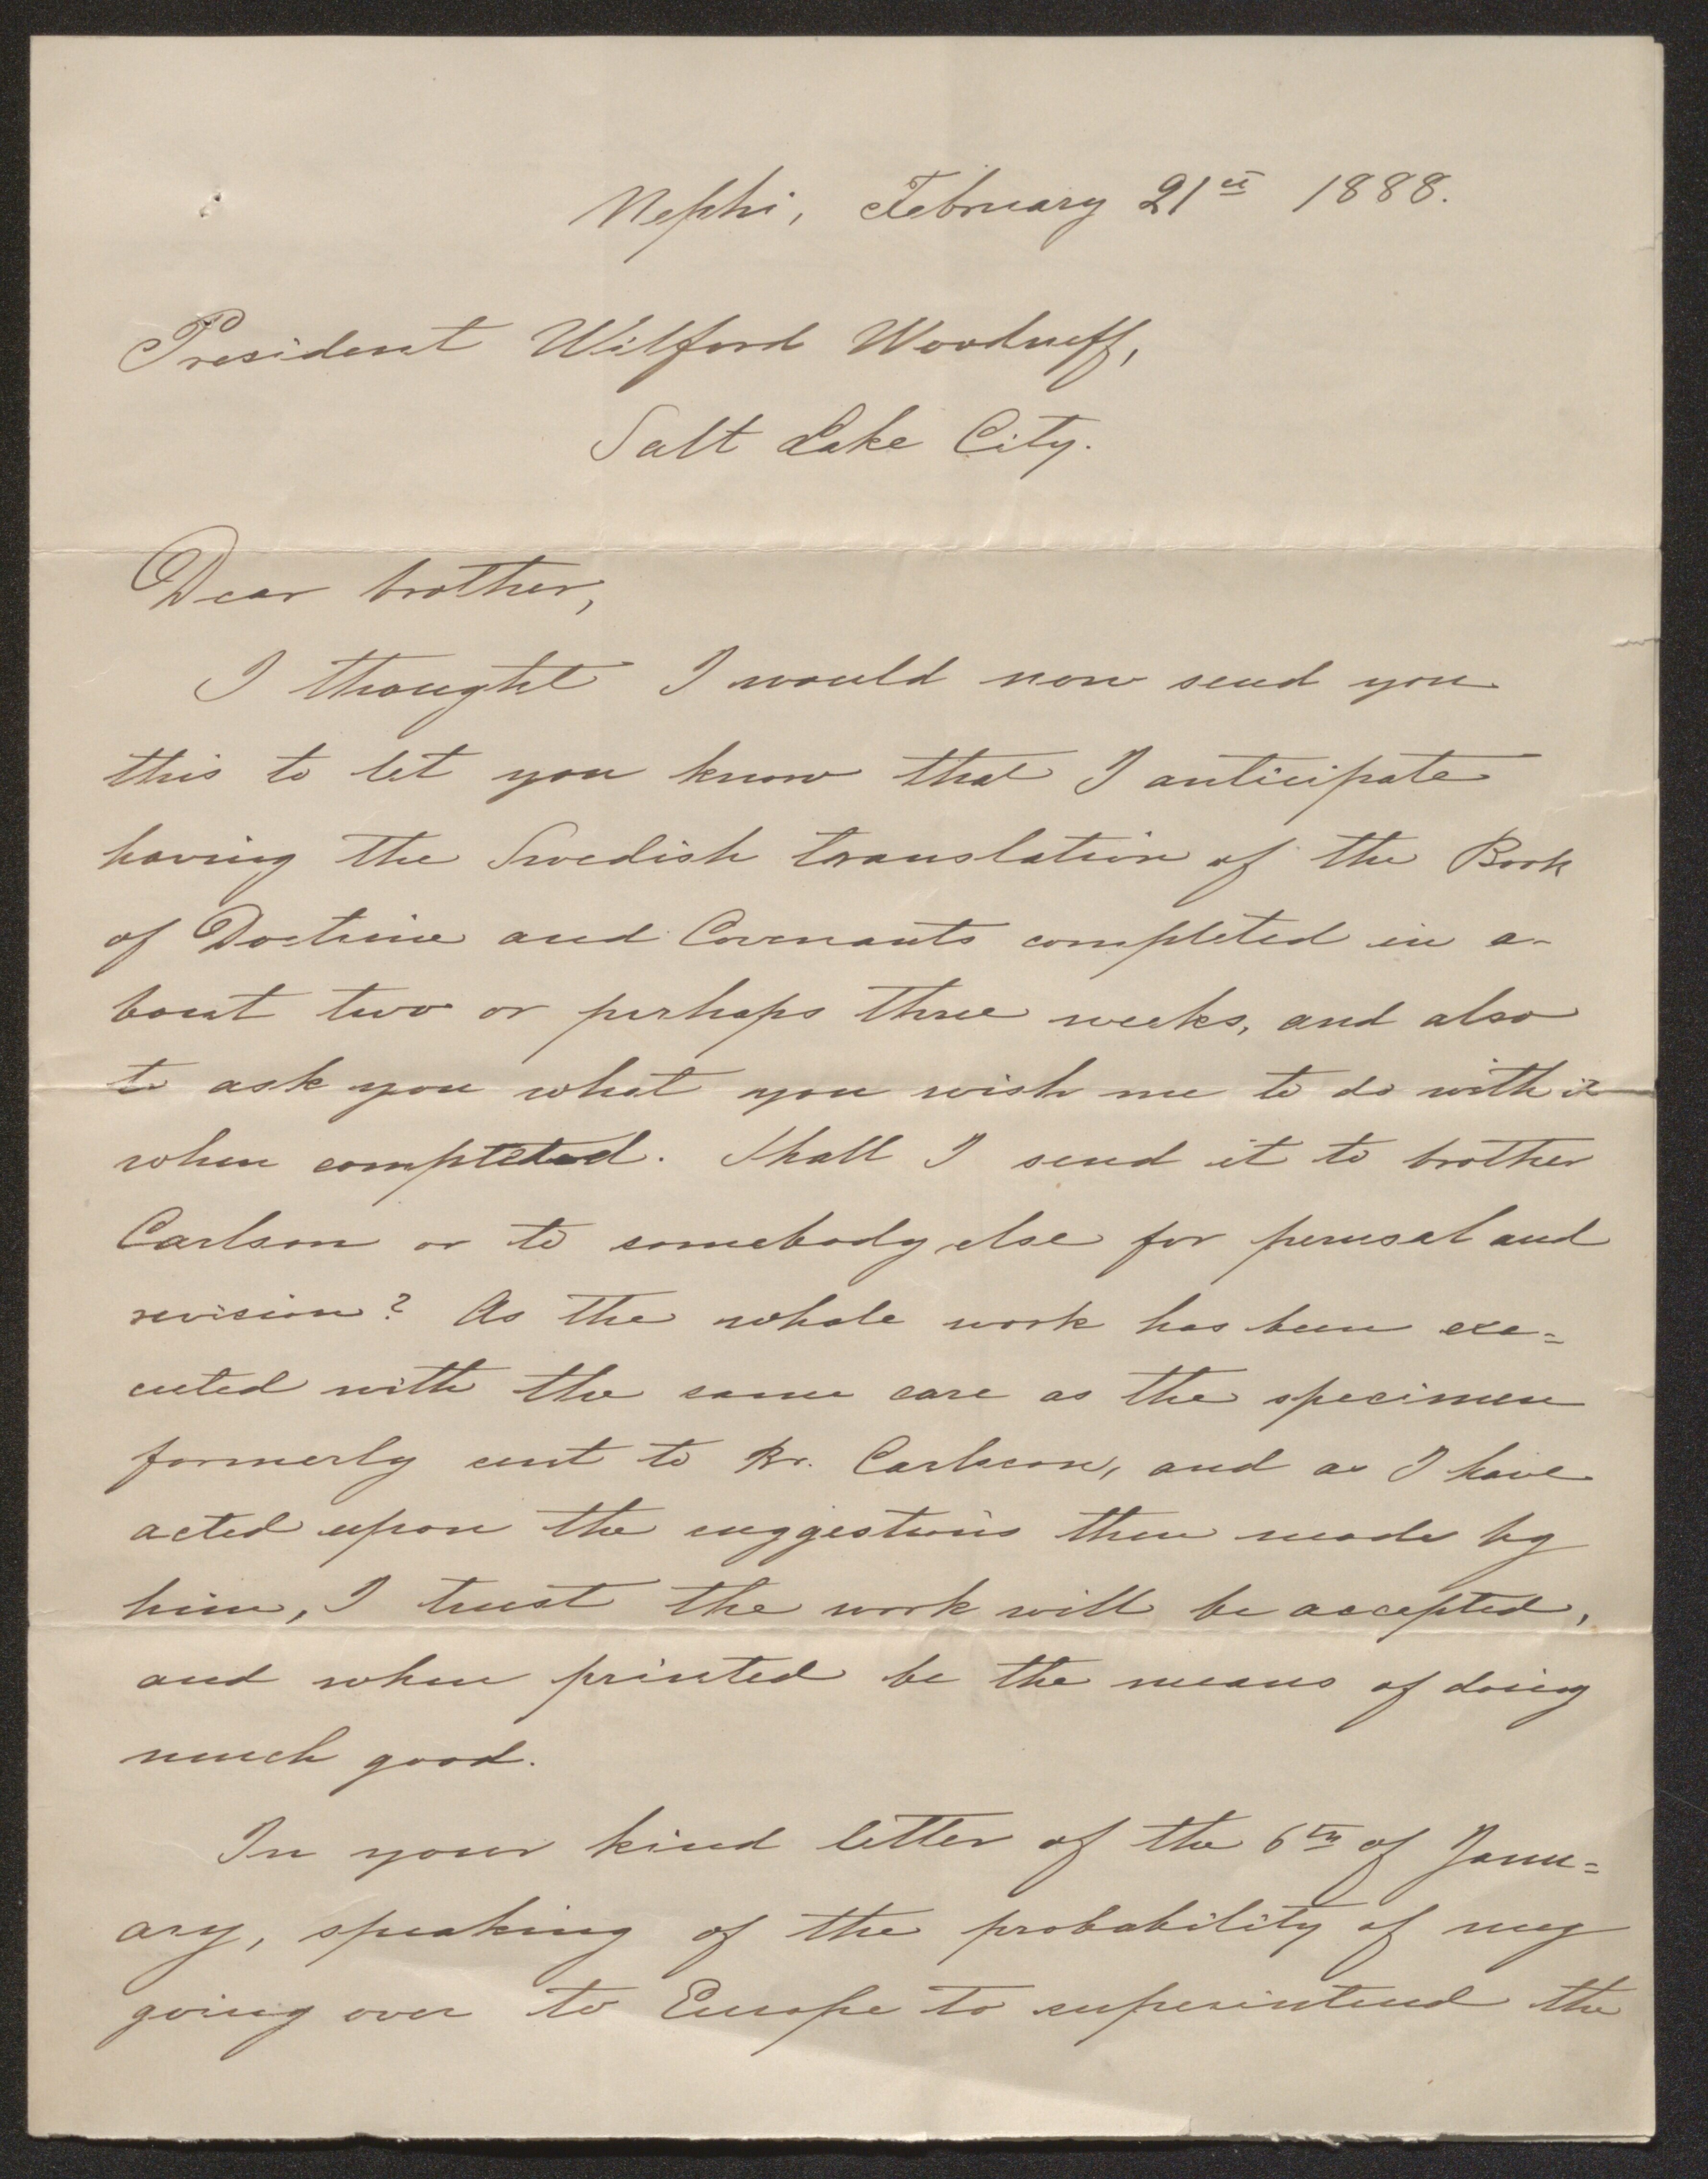 Nephi, February 21st 1888.
President Wilford Woodruff,
Salt Lake City.
Dear brother,
I thought I would now send you
this to let you know that I anticipate
having the Swedish translation of the Book
of Doctrine and Covenants completed in a-
bout two or perhaps three weeks, and also
to ask you what you wish me to do with it
when completed. Shall I send it to brother
Carlson or to somebody else for perusal and
revision? As the whole work has been exe=
cuted with the same care as the specimen
formerly sent to Br. Carlson, and as I have
acted upon the suggestions then made by
him, I trust the work will be accepted,
and when printed be the means of doing
much good.
In your kind letter of the 6th of Janu=
ary, speaking of the probability of my
going over to Europe to superintend the